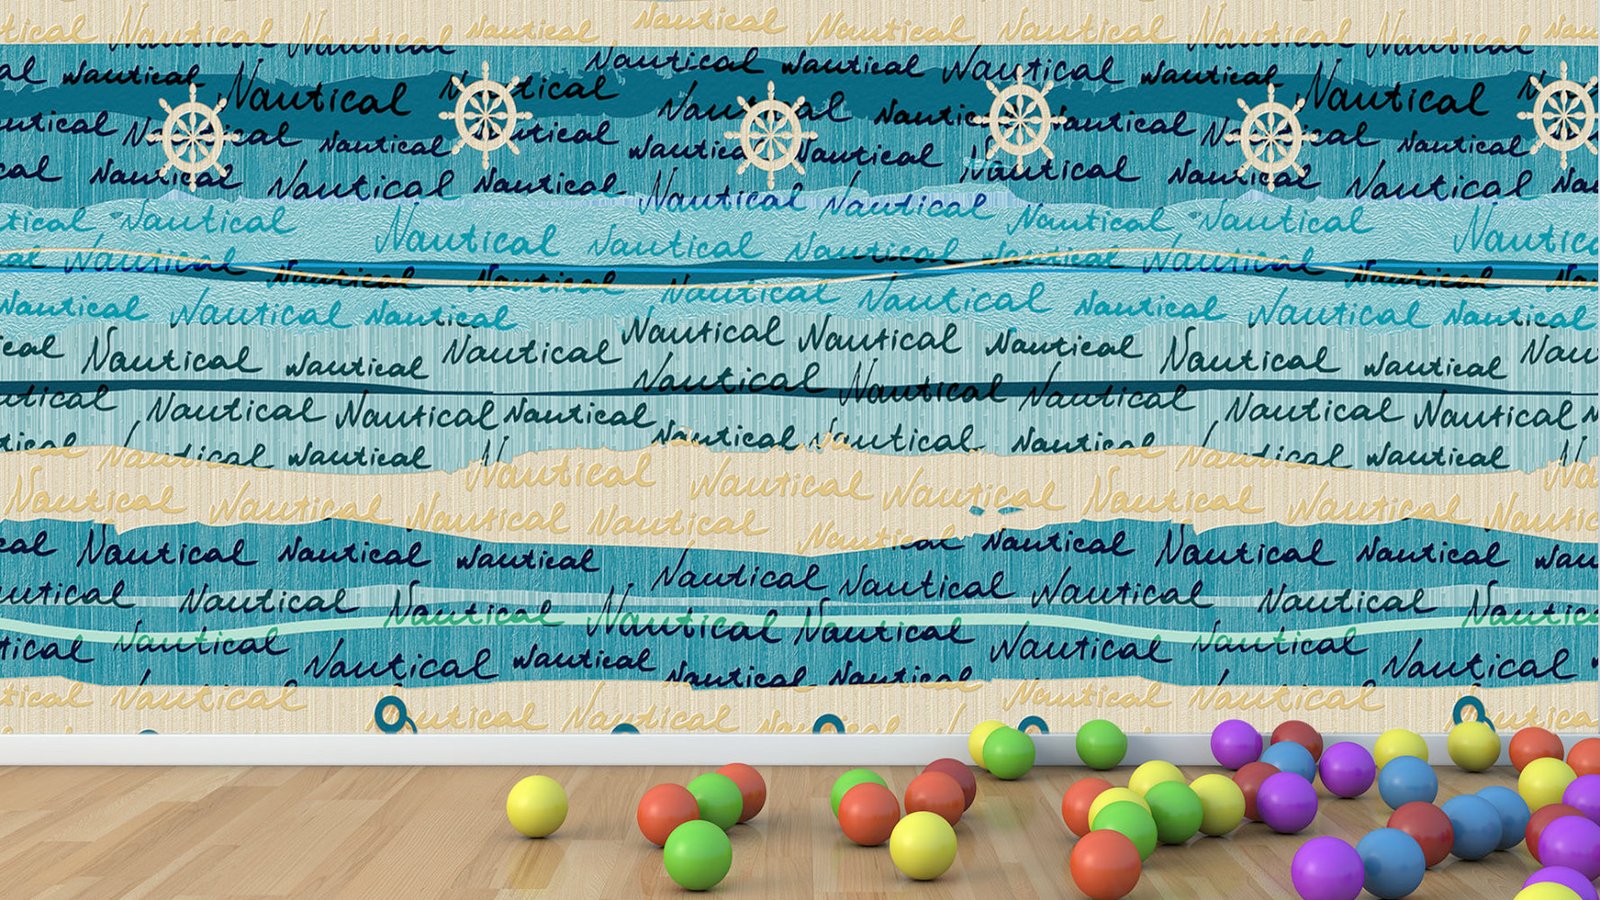 Nautical Nautical Nautical Nautical Nautical Nautical Nautical Nautical
Nautical Nautical Nautical Nautical
Nautical Nautical Nautical Nautical
Nautical Nautical Nautical Nautical Nautical
Nautical Nautical Nautical Nautical
Nautical Nautical Nautical Nautical Nautical Nautical
Nautical Nautical Nautical Nautical Nautical Nautical
Nautical Nautical Nautical Nautical Nautical Nautical
Nautical Nautical Nautical Nautical Nautical Nautical Nautical
Nautical Nautical Nautical Nautical Nautical Nautical Nautical Nautical
Nautical Nautical Nautical Nautical Nautical Nautical Nautical Nautical
Nautical Nautical Nautical Nautical Nautical Nautical Nautical Nautical
Nautical Nautical Nautical Nautical Nautical Nautical
Nautical Nautical Nautical Nautical Nautical Nautical
Nautical Nautical Nautical Nautical Nautical Nautical Nautical
Nautical Nautical Nautical Nautical Nautical Nautical
Nautical Nautical Nautical Nautical Nautical Nautical
Nautical Nautical Nautical Nautical Nautical
Nautical Nautical Nautical Nautical Nautical